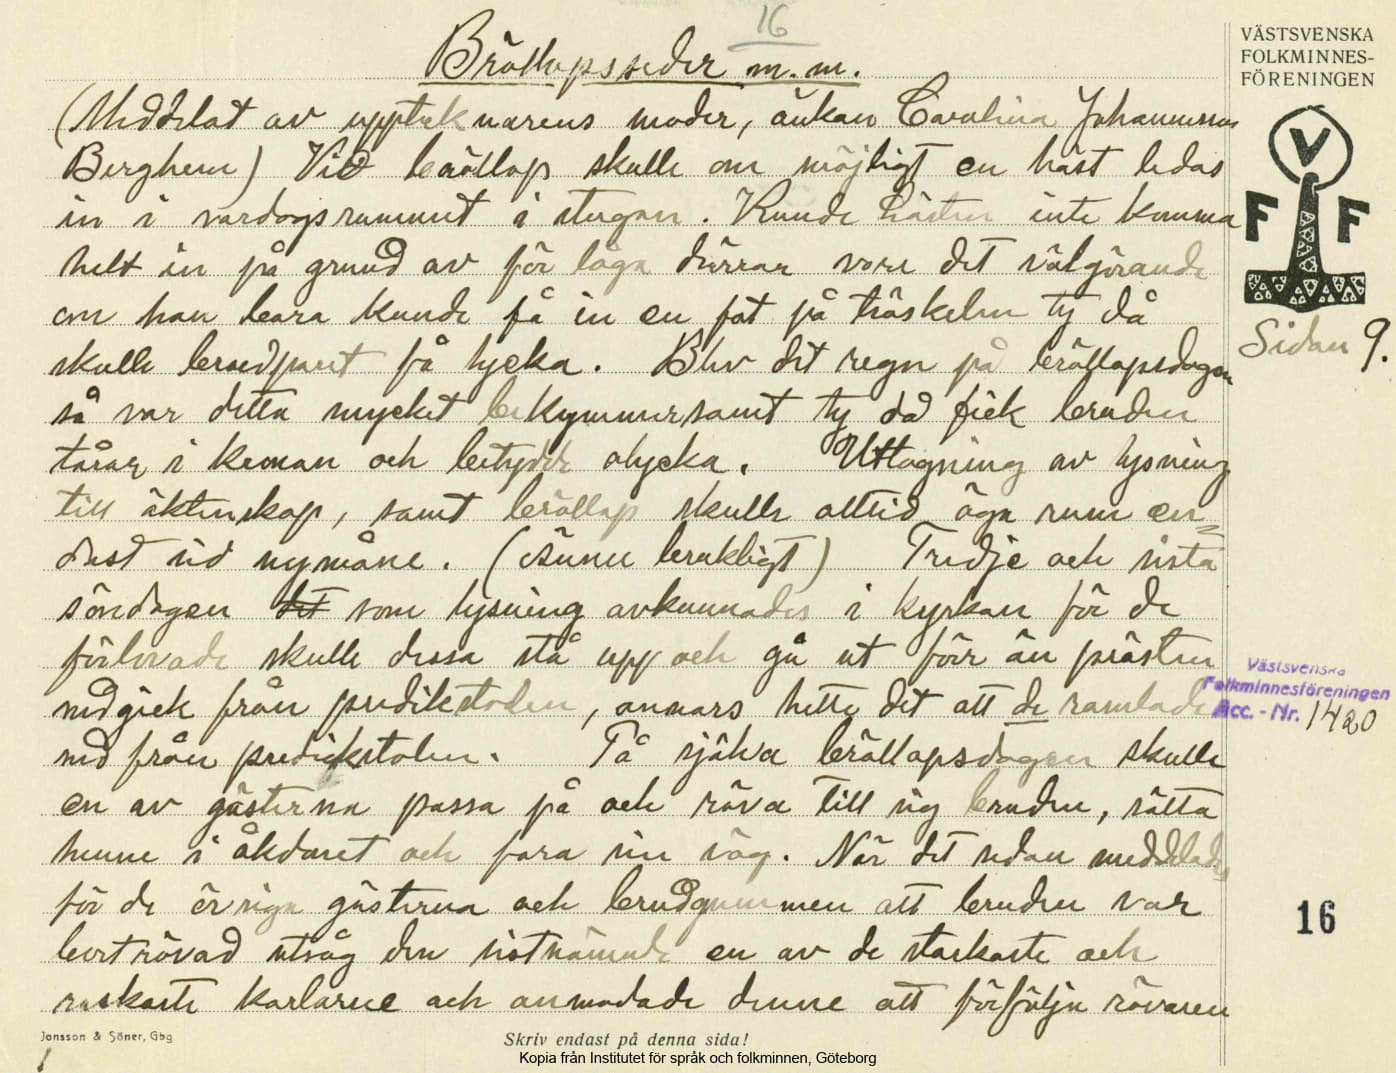 16
Bröllopsseder m.m.
VÄSTSVENSKA
FOLKMINNES-
FÖRENINGEN
V
F F
(Meddelat av upptecknarens moder, änkan Carolina Johannesson
Berghem) Vid bröllop skulle om möjligt en häst ledas
in i vardagsrummet i stugan. Kunde hästen inte komma
helt in på grund av för låga dörrar vore det välgörande
om han bara kunde få in en fot på tröskeln ty då
Sidan 9.
skulle brudparet få lycka. Blev det regn på bröllopsdagen
så var detta mycket bekymmersamt ty då fick bruden
tårar i kronan och betydde olycka. Uttagning av lysning
till äktenskap, samt bröllop skulle alltid äga rum en=
dast vid nymåne. (Ännu brukligt) Tredje och sista
söndagen det som lysning avkunnades i kyrkan för de
förlovade skulle dessa stå upp och gå ut förr än prästen
nedgick från predikstolen, annars hette det att de ramlade
ned från predickstolen. På själva bröllopsdagen skulle
Västsvenska
Folkminnesföreningen
Acc. - Nr. 1420
en av gästerna passa på och röva till sig bruden, sätta
henne i åkdonet och fara sin väg. När det sedan meddelades
för de övriga gästerna och brudgummen att bruden var
bortrövad utsåg den sistnämnde en av de starkaste och
raskaste karlarne och anmodade denne att förfölja rövaren
16
Jonsson & Söner, Gbg
Skriv endast på denna sida!
Kopia från Institutet för språk och folkminnen, Göteborg